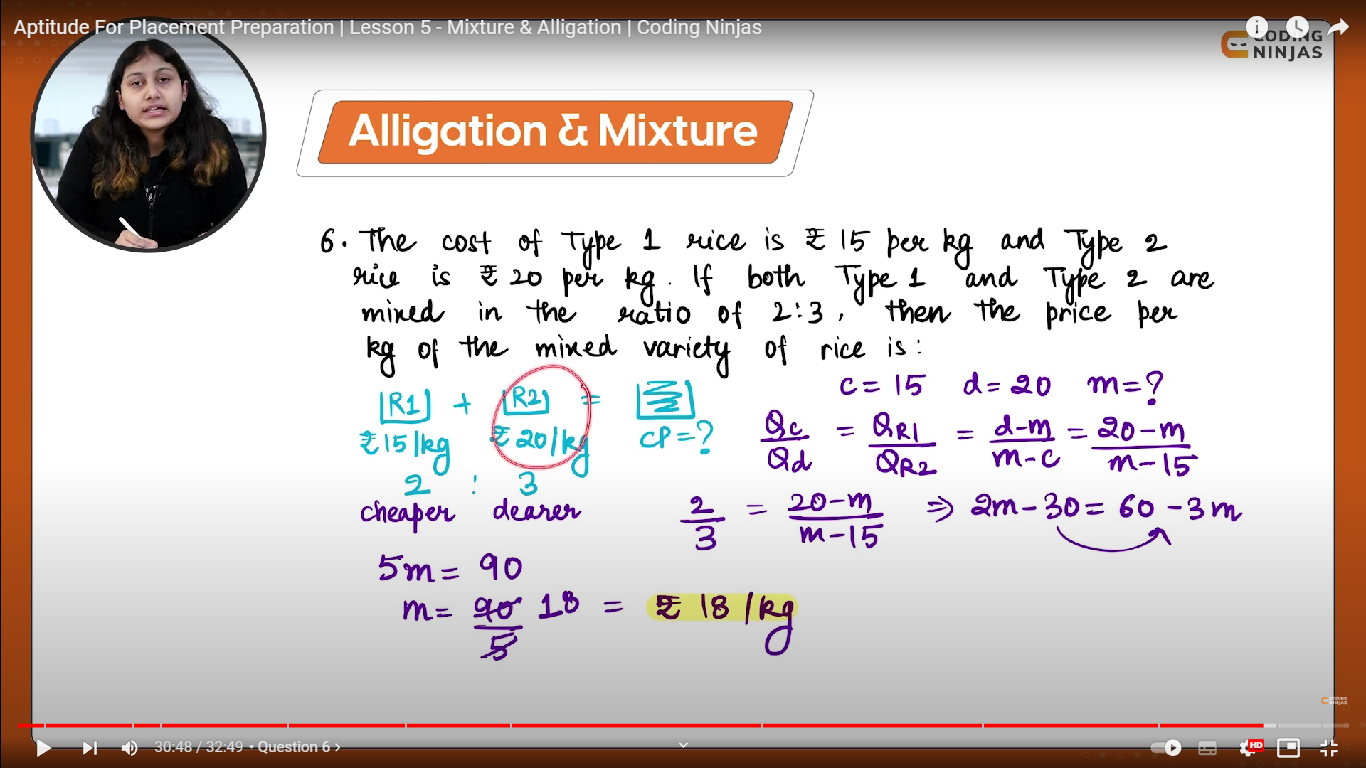 Aptitude For Placement Preparation | Lesson 5 - Mixture & Alligation | Coding Ninjas
CODING
NINJAS
Alligation & Mixture
6. The cost of Type 1 rice is ₹ 15 per kg and Type 2
rice is ₹ 20 per kg. If both Type 1 and Type 2 are
mixed in the ratio of 2:3, then the price per
kg of the mixed variety of rice is:
R1 + R2 =
₹ 15/kg ₹ 20/kg CP = ?
2 : 3
cheaper dearer
c = 15 d = 20 m = ?
Qc/Qd = QR1/QR2 = d-m/m-c = 20-m/m-15
2/3 = 20-m/m-15 ⇒ 2m-30 = 60-3m
5m = 90
m = 90/5 18 = ₹ 18/kg
CODING
NINJAS
30:48 / 32:49 • Question 6 >
HD